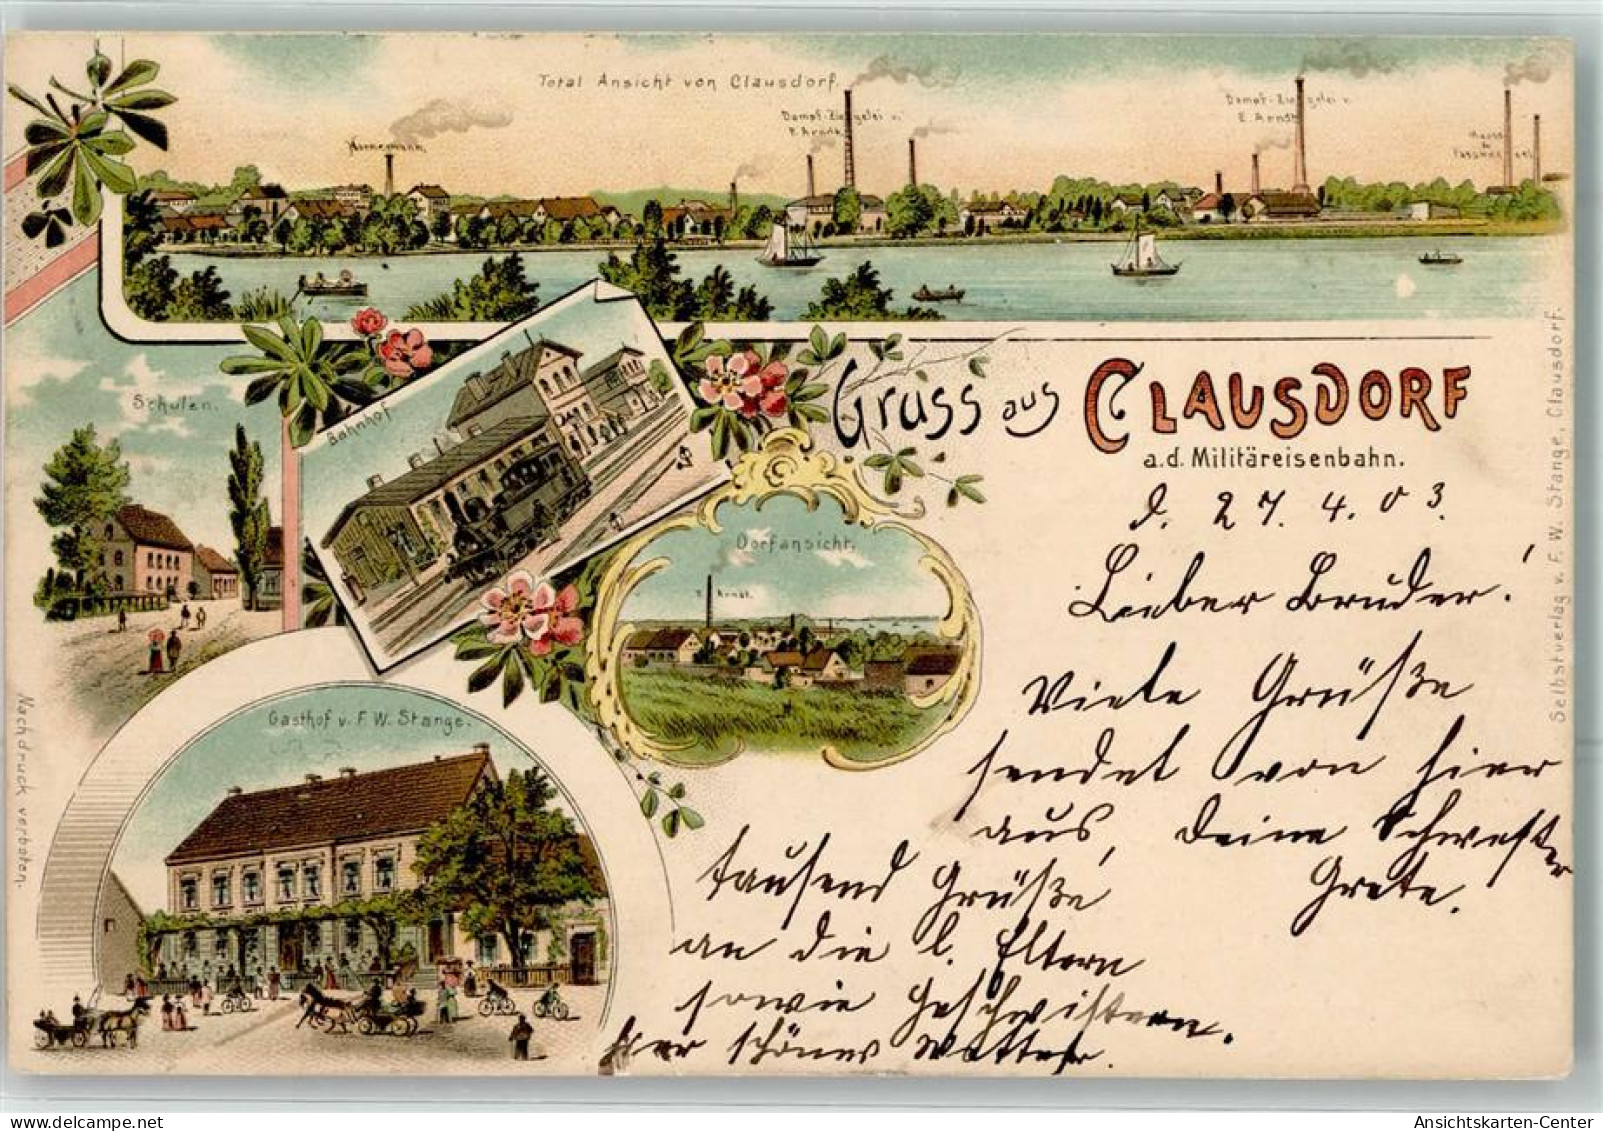 Total Ansicht von Clausdorf.
Dampf-Ziegelei v.
E. Arndt.
Dampf-Ziegelei v.
E. Arndt.
Schulen.
Bahnhof.
Gruss aus CLAUSDORF
a.d. Militäreisenbahn.
Dorfansicht.
Arndt.
Gasthof v. F. W. Stange.
Nachdruck verboten.
Selbstverlag v. F. W. Stange, Clausdorf.
d. 27. 4. 03.
Lieber Bruder!
Viele Grüße
sendet von hier
aus, deine Schwester
Grete.
tausend Grüße
an die l. Eltern
sowie Geschwistern.
hier schönes Wetter.
Ansichtskarten-Center